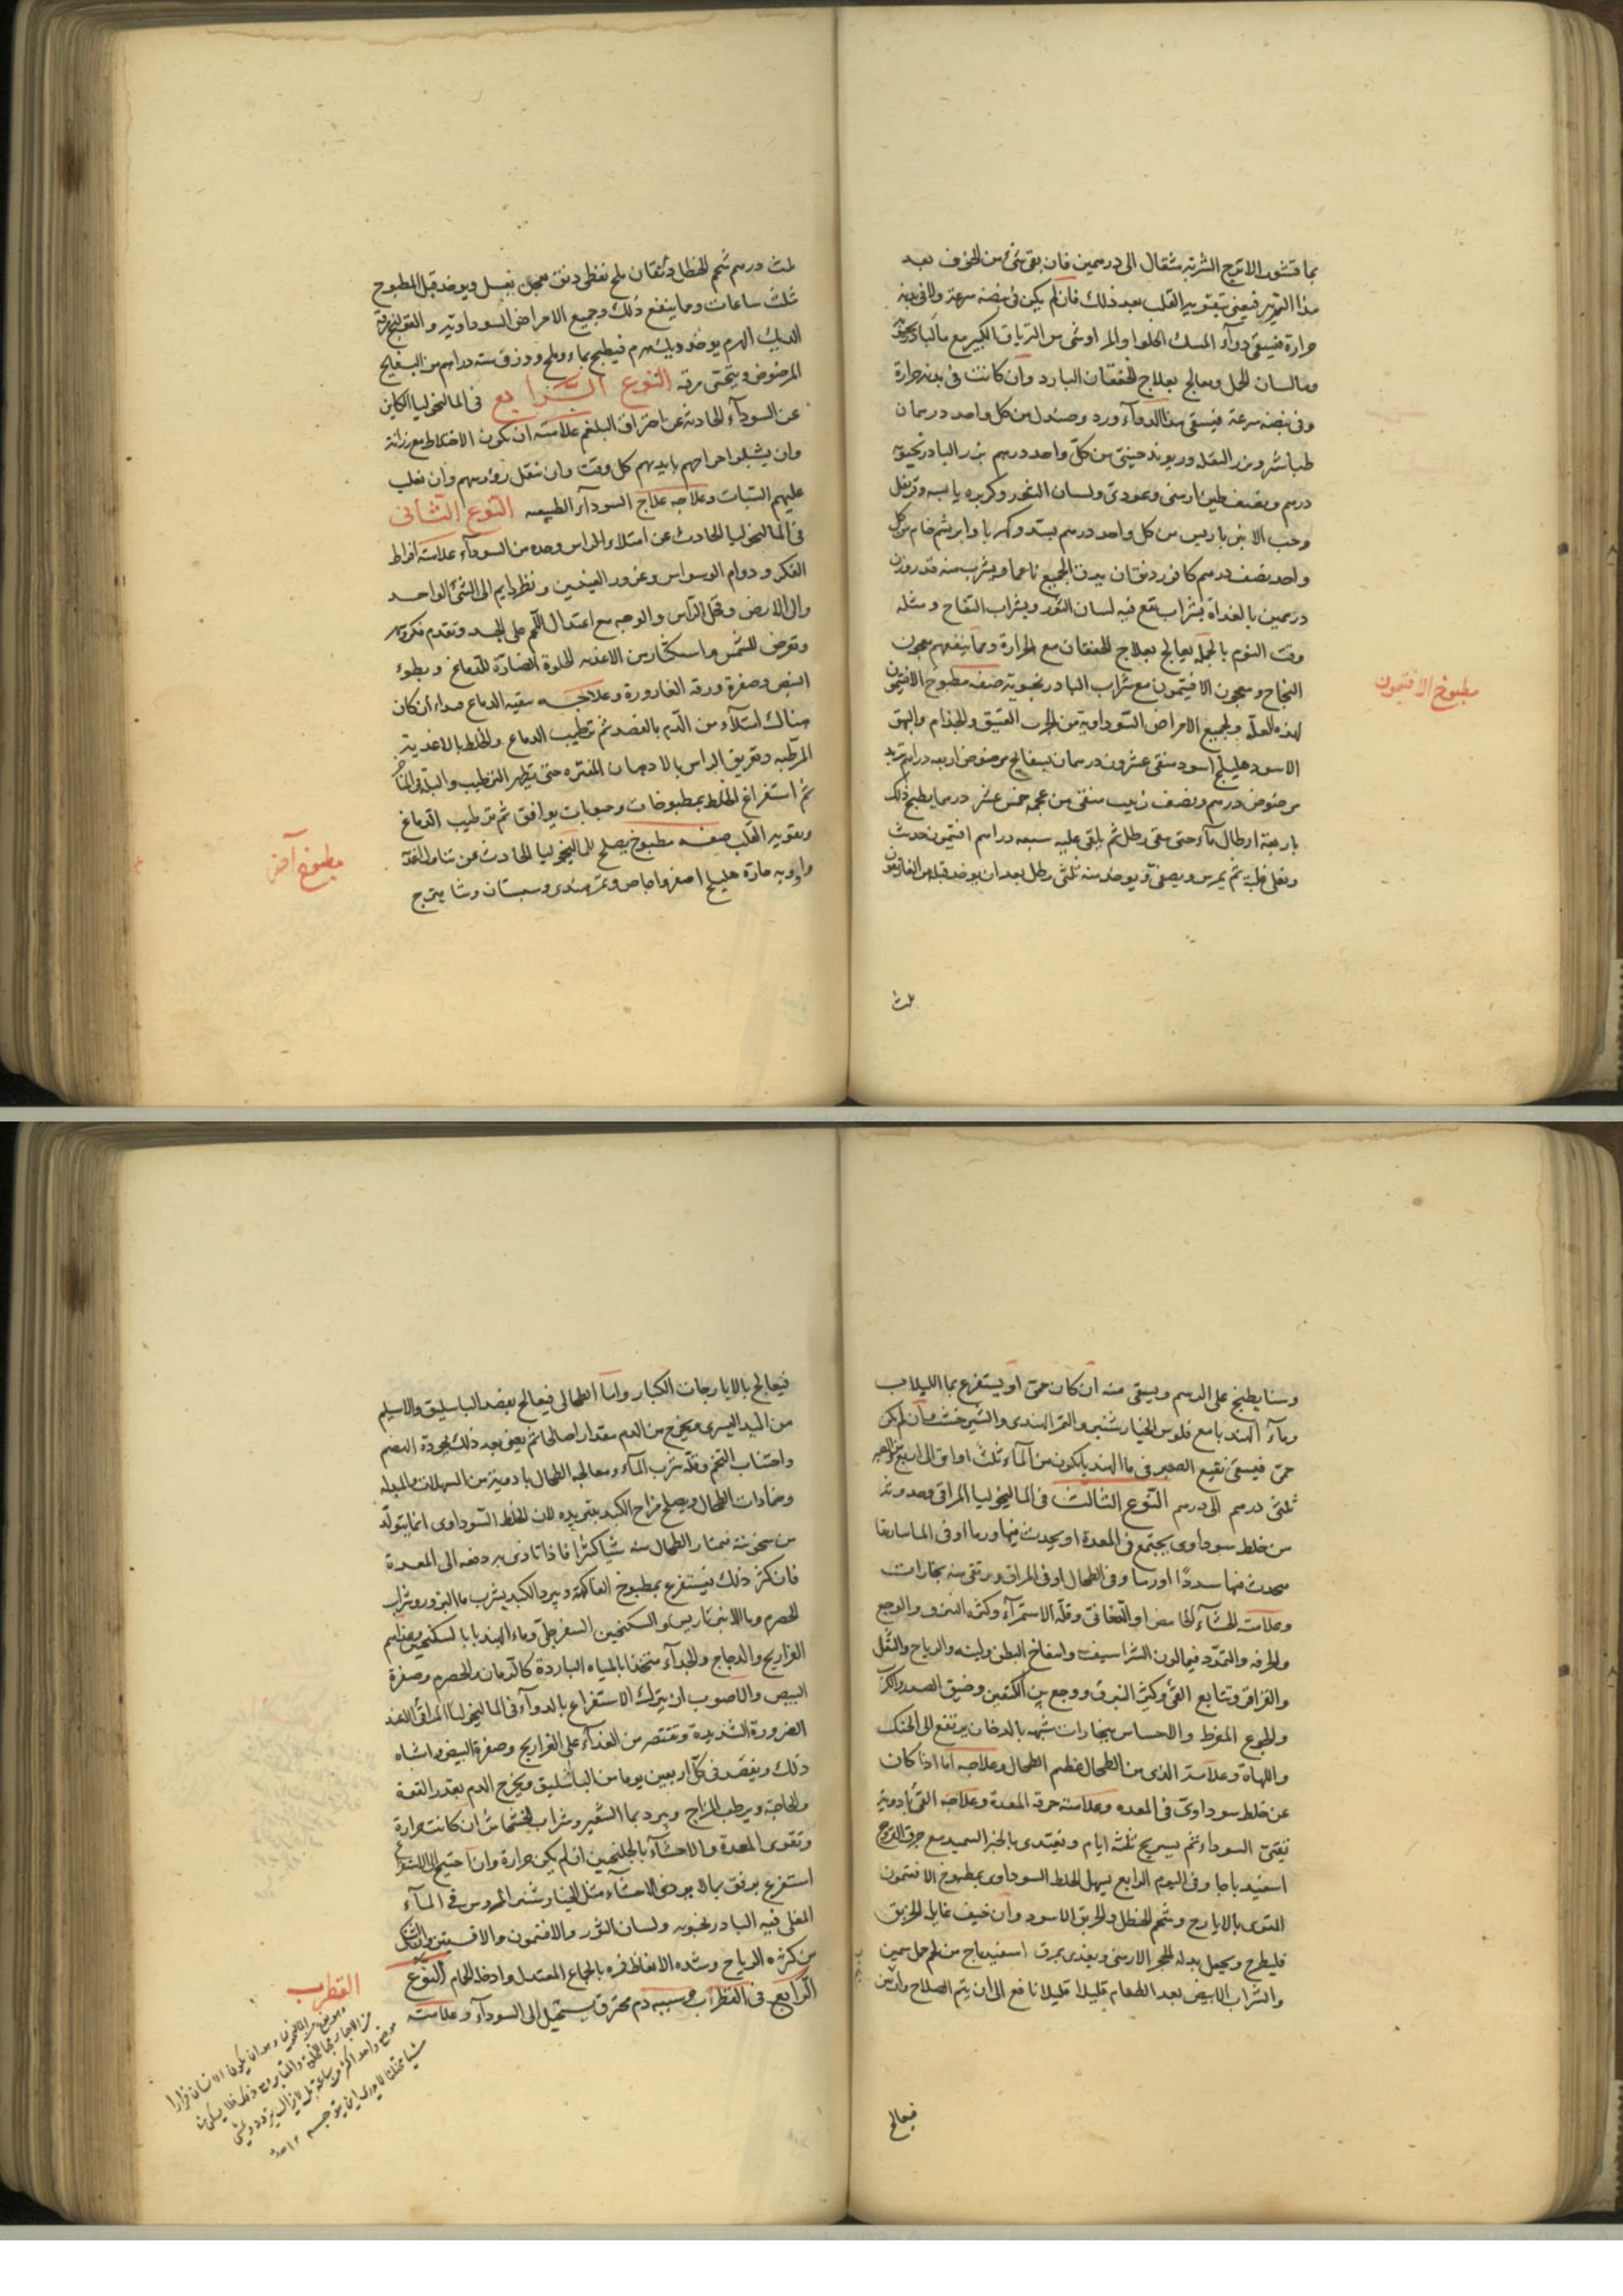 بما قشور الاترج الشربة مثقال الى درهمين فان بقى شئ من الخوف بعد
هذا التدبير فيعنى بتقوية القلب بعد ذلك فان لم يكن فى نبضه سرعة ولا فى بدنه
حرارة فيسقى دواء المسك الحلو او المر او شئ من الترياق الكبير مع ماء البادرنجبويه
وماء لسان الحمل ويعالج بعلاج الخفقان البارد وان كانت فى بدنه حرارة
وفى نبضه سرعة فيسقى هذا الدواء ورد وصندل من كل واحد درهمان
طباشير وبزر البقله وريوند صينى من كل واحد درهم بزر البادرنجبويه
درهم ونصف طين ارمنى وعود نى ولسان الثور وكزبره يابسه وقرنفل
وحب الانبرباريس من كل واحد درهم بسد وكهربا وابريشم خام من كل
واحد نصف درهم كافور دنقان يدق الجميع ناعما ويشرب منه قدر وزن
درهمين بالغداة بشراب نقع فيه لسان الثور وبشراب التفاح ومثله
وقت النوم بالجمله يعالج بعلاج الخفقان مع الحرارة ومما ينفعهم معجون
النجاح ومعجون الافتيمون مع شراب البادرنجبويه صفه مطبوخ الافتيمون
لهذه العلة ولجميع الامراض السوداوية من الجرب العتيق والجذام والبهق
الاسود هليلج اسود منقى عشرون درهمان بسفايج مرضوض اربعه دراهم تربد
مرضوض درهم ونصف زبيب منقى من عجمه خمس عشر درهما يطبخ ذلك
باربعة ارطال ماء حتى يبقى رطل ثم يلقى عليه سبعه دراهم افتيمون حديث
ويغلى غلية ثم يمرس ويصفى ويوخذ منه ثلثى رطل بعد ان يوخذ قبله من الغاريقون
مطبوخ الافتيمون
ثلث
ثلث درهم شحم الحنظل دنقان ملح نفطى دنق يعجن بعسل ويوخذ قبل المطبوخ
ثلث ساعات ومما ينفع ذلك وجميع الامراض السوداوية والقولنج مرقة
الديك الهرم يوخذ ديك هرم فيطبخ بماء وملح ووزن سته دراهم من البسفايج
المرضوض ويتحسى مرقه النوع الرابع فى الماليخوليا الكاين
عن السوداء الحادثة عن احتراق البلغم علامته ان يكون الاختلاط مع رزانة
وان يشيلوا حراصهم بايديهم كل وقت وان تثقل روسهم وان يغلب
عليهم السبات وعلاجه علاج السوداء الطبيعيه النوع الثانى
فى الماليخوليا الحادث عن امتلاء الراس وحده من السوداء علامته افراط
الفكر ودوام الوسواس وغور العينين ونظر دايم الى الشئ الواحد
والى الارض وقحل الراس والوجه مع اعتدال اللحم على الجسد وتقدم فكر وسهر
وتعرض للشمس واستكثار من الاغذيه الحلوة الضارة للدماغ وبطوء
النبض وصغره ورقة القارورة وعلاجه تنقيه الدماغ مبداء ان كان
هناك امتلاء من الدم بالفصد ثم ترطيب الدماغ والخلط بالاغذية
المرطبه وتعريق الراس بالادهان المفتره حتى يظهر الترطيب والبلة فى المناخر
ثم استفراغ الخلط بمطبوخات وحبوبات يوافق ثم ترطيب الدماغ
وتقوية القلب صفه مطبوخ يصلح للماليخوليا الحادث عن تناول اغذية
وادويه حارة هليلج اصفر واجاص وتمر هندى وسبستان وشاهترج
مطبوخ آخر
وسنا يطبخ على الرسم ويسقى منه ان كان حمى او يستفرغ بماء اللبلاب
وماء الهندبا مع فلوس الخيارشنبر والتمر الهندى والشيرخشت وان لم يكن
حمى فيسقى نقيع الصبر فى ماء الهندبا يكون من الماء ثلث اواق الى اربع من الصبر
ثلثى درهم الى درهم النوع الثالث فى الماليخوليا المراقى وحدوثه
من خلط سوداوى يجتمع فى المعدة او يحدث فيها ورما او فى الماساريقا
يحدث منها سددا او رما وفى الطحال او فى المراق ويرتقى منه بخارات
وعلامته الجشاء الحامض او الدخانى وقلة الاستمراء وكثرة البزق والوجع
والحرقه والتمدد فيما دون الشراسيف وانتفاخ البطن ولينه والرياح والثقل
والقراقر وتتابع القئ وكثرة البزاق ووجع بين الكتفين وضيق الصدر والكرب
والجوع المفرط والاحساس ببخارات شبيه بالدخان يرتفع الى الحنك
واللهاة وعلامة الذى من الطحال عظم الطحال وعلاجه اما اذا كان
عن خلط سوداوى فى المعده وعلامته حرقة المعدة وعلاجه القئ بادوية
تقئ السوداء ثم يستريح ثلثة ايام ويغتدى بالخبز السميد مع مرق الفروج
اسفيدباجا وفى اليوم الرابع يسهل الخلط السوداوى بمطبوخ الافتيمون
المقوى بالايارج وشحم الحنظل والخربق الاسود وان خيف غايلة الخربق
فليطرح ويجعل بدله الحجر الارمنى ويغذى بمرق اسفيدباج من لحم حمل سمين
والشراب الابيض بعد الطعام قليلا قليلا نافع الى ان يتم الصلاح والا
فيعالج
فيعالج بالايارجات الكبار واما الطحالى فيعالج بفصد الباسليق والاسيلم
من اليد اليسرى ويخرج من الدم مقدارا صالحا ثم يعنى بعد ذلك بجودة الهضم
واجتناب التخم وقلة شرب الماء ومعالجة الطحال بادوية من المسهلات والمبدله
وضمادات الطحال ويصلح مزاج الكبد بتبريده لان الخلط السوداوى انما يتولد
من سخونته فيمتار الطحال منه شيئا كثيرا فاذا تاذى به دفعه الى المعدة
فان كثر ذلك فيستفرغ بمطبوخ الفاكهة ويبرد الكبد بشرب ماء البزور وشراب
الحصرم وماء الانبرباريس والسكنجبين السفرجلى وماء الهندبا بالسكنجبين وغذاهم
الفراريج والدجاج والجداء متخذا بالمياه الباردة كالرمان والحصرم وصفرة
البيض والاصوب ان يترك الاستفراغ بالدواء فى الماليخوليا المراقى الا عند
الضرورة الشديدة ويقتصر من الغذاء على الفراريج وصفرة البيض واشباه
ذلك ويفصد فى كل اربعين يوما من الباسليق ويخرج الدم بقدر القوة
والحاجة ويرطب المزاج ويبرد بماء الشعير وشراب الخشخاش ان كانت حرارة
وتقوى المعدة والاحشاء بالجلنجبين ان لم يكن حرارة وان احتيج الى الاستفراغ
استفرغ برفق بما لا يوذى الاحشاء مثل الخيارشنبر الممروس فى الماء
المغلى فيه البادرنجبويه ولسان الثور والافتيمون والافسنتين وان شكى
من كثرة الرياح وشدة الانعاظ فمره بالجماع المعتدل وادخله الحمام النوع
الرابع فى القطرب وسببه دم محترق يستحيل الى السوداء وعلامته
القطرب